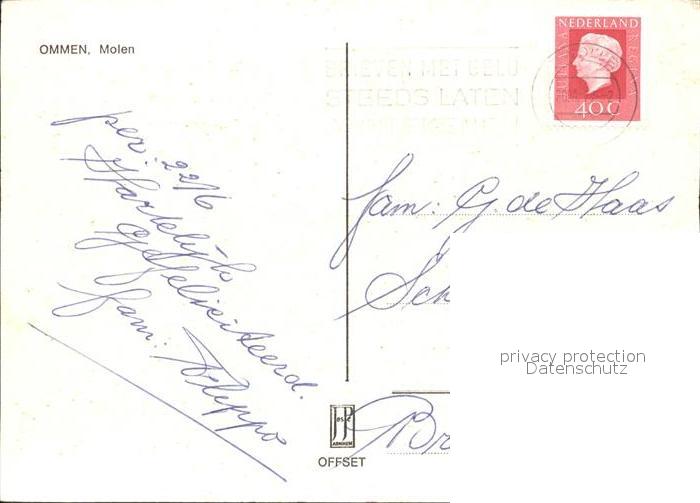 OMMEN, Molen
NEDERLAND
JULIANA REGINA
40 c
BRIEVEN MET GELD
STEEDS LATEN
per. 22/6
Hartelijk
Gefeliciteerd.
fam: Fleppo
fam: G. de Haas
Sch
privacy protection
Datenschutz
Br
JosPé
ARNHEM
OFFSET